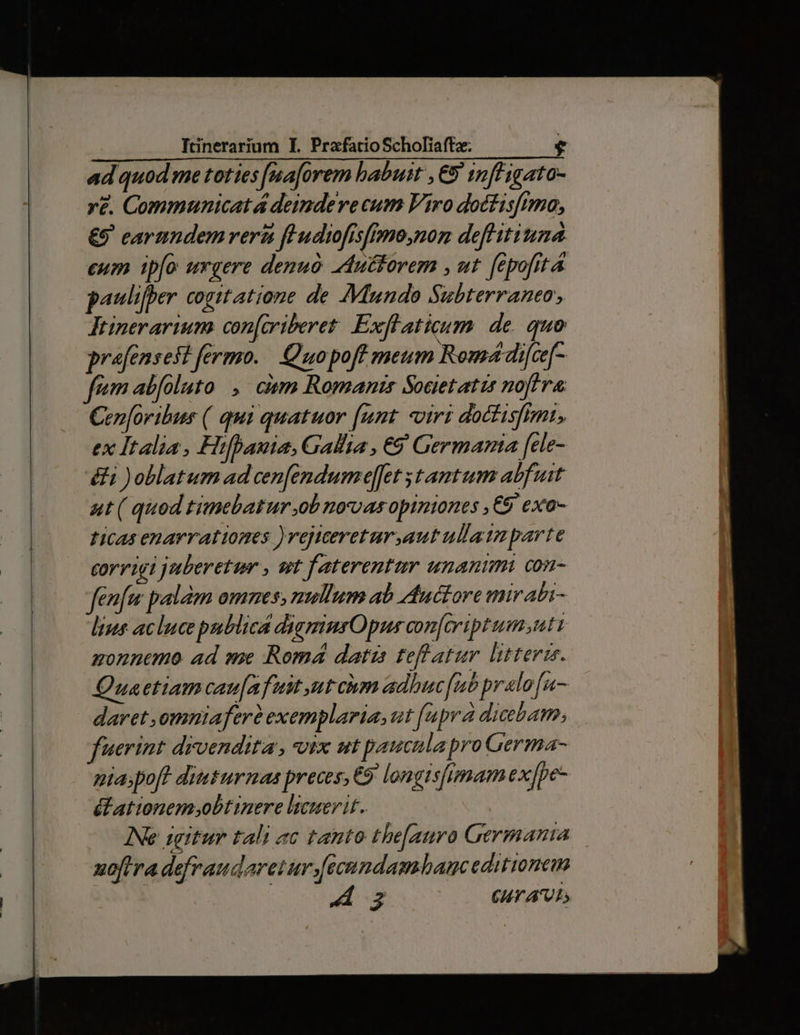 Itinerarium I. Præfatio Scholiaſtæ. 5
ad quod me toties ſuaſorem habuit, & inſtigato-
rē. Communicatâ deinde re cum Viro doctiſſimo,
& earundem rerũ ſtudioſiſſimo, non deſtiti unà
cum ipſo urgere denuò Auctorem, ut ſepoſitâ
pauliſper cogitatione de Mundo Subterraneo,
Itinerarium conſcriberet Exſtaticum de quo
præſens eſt ſermo. Quo poſt meum Româ diſceſ-
ſum abſoluto, cùm Romanis Societatis noſtræ
Cenſoribus ( qui quatuor ſunt viri doctiſſimi,
ex Italia, Hiſpania, Gallia, & Germania ſele-
cti ) oblatum ad cenſendum eſſet; tantum abfuit
ut ( quod timebatur, ob novas opiniones, & exo-
ticas enarrationes ) rejiceretur, aut ulla in parte
corrigi juberetur, ut faterentur unanimi con-
ſenſu palàm omnes, nullum ab Auctore mirabi-
lius ac luce publicâ dignius Opus conſcriptum, uti
nonnemo ad me Româ datis teſtatur litteris.
Quæ etiam cauſa fuit, ut cùm adhuc ſub prælo ſu-
daret, omnia ferè exemplaria, ut ſuprà dicebam,
fuerint divendita, vix ut paucula pro Germa-
nia, poſt diuturnas preces, & longiſſimam exſpe-
ctationem, obtinere licuerit.
Ne igitur tali ac tanto theſauro Germania
noſtra defraudaretur, ſecundam hanc editionem
A 3 curavi,